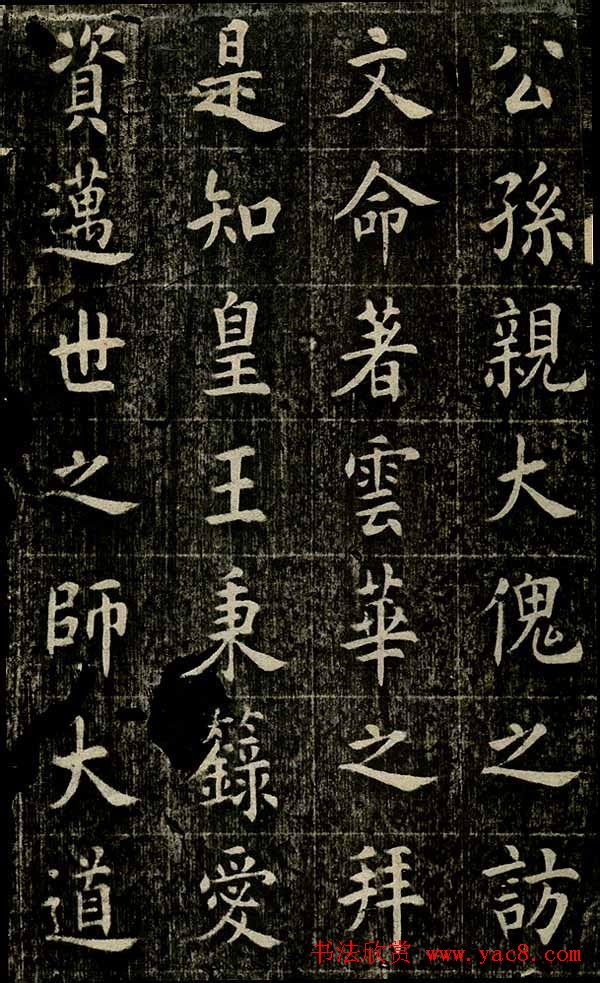 公孫親大傀之訪
文命著雲華之拜
是知皇王秉籙愛
資邁世之師大道
书法欣赏 www.yac8.com